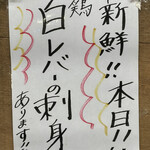 新鮮!!本日!!
鶏
白レバーの刺身
あります!!